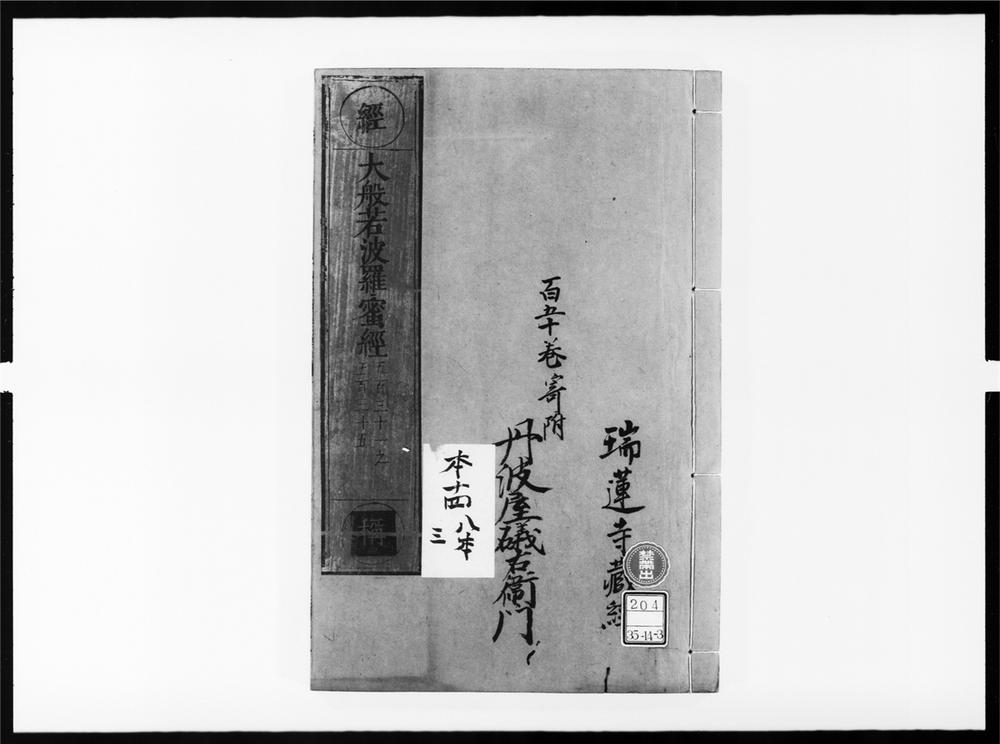 瑞蓮寺藏經
百五十卷寄附
丹波屋礒右衛門
經
大般若波羅蜜經
五百三十一之
五百三十五
本十四
八本
三
禁帶出
204
35-14-3